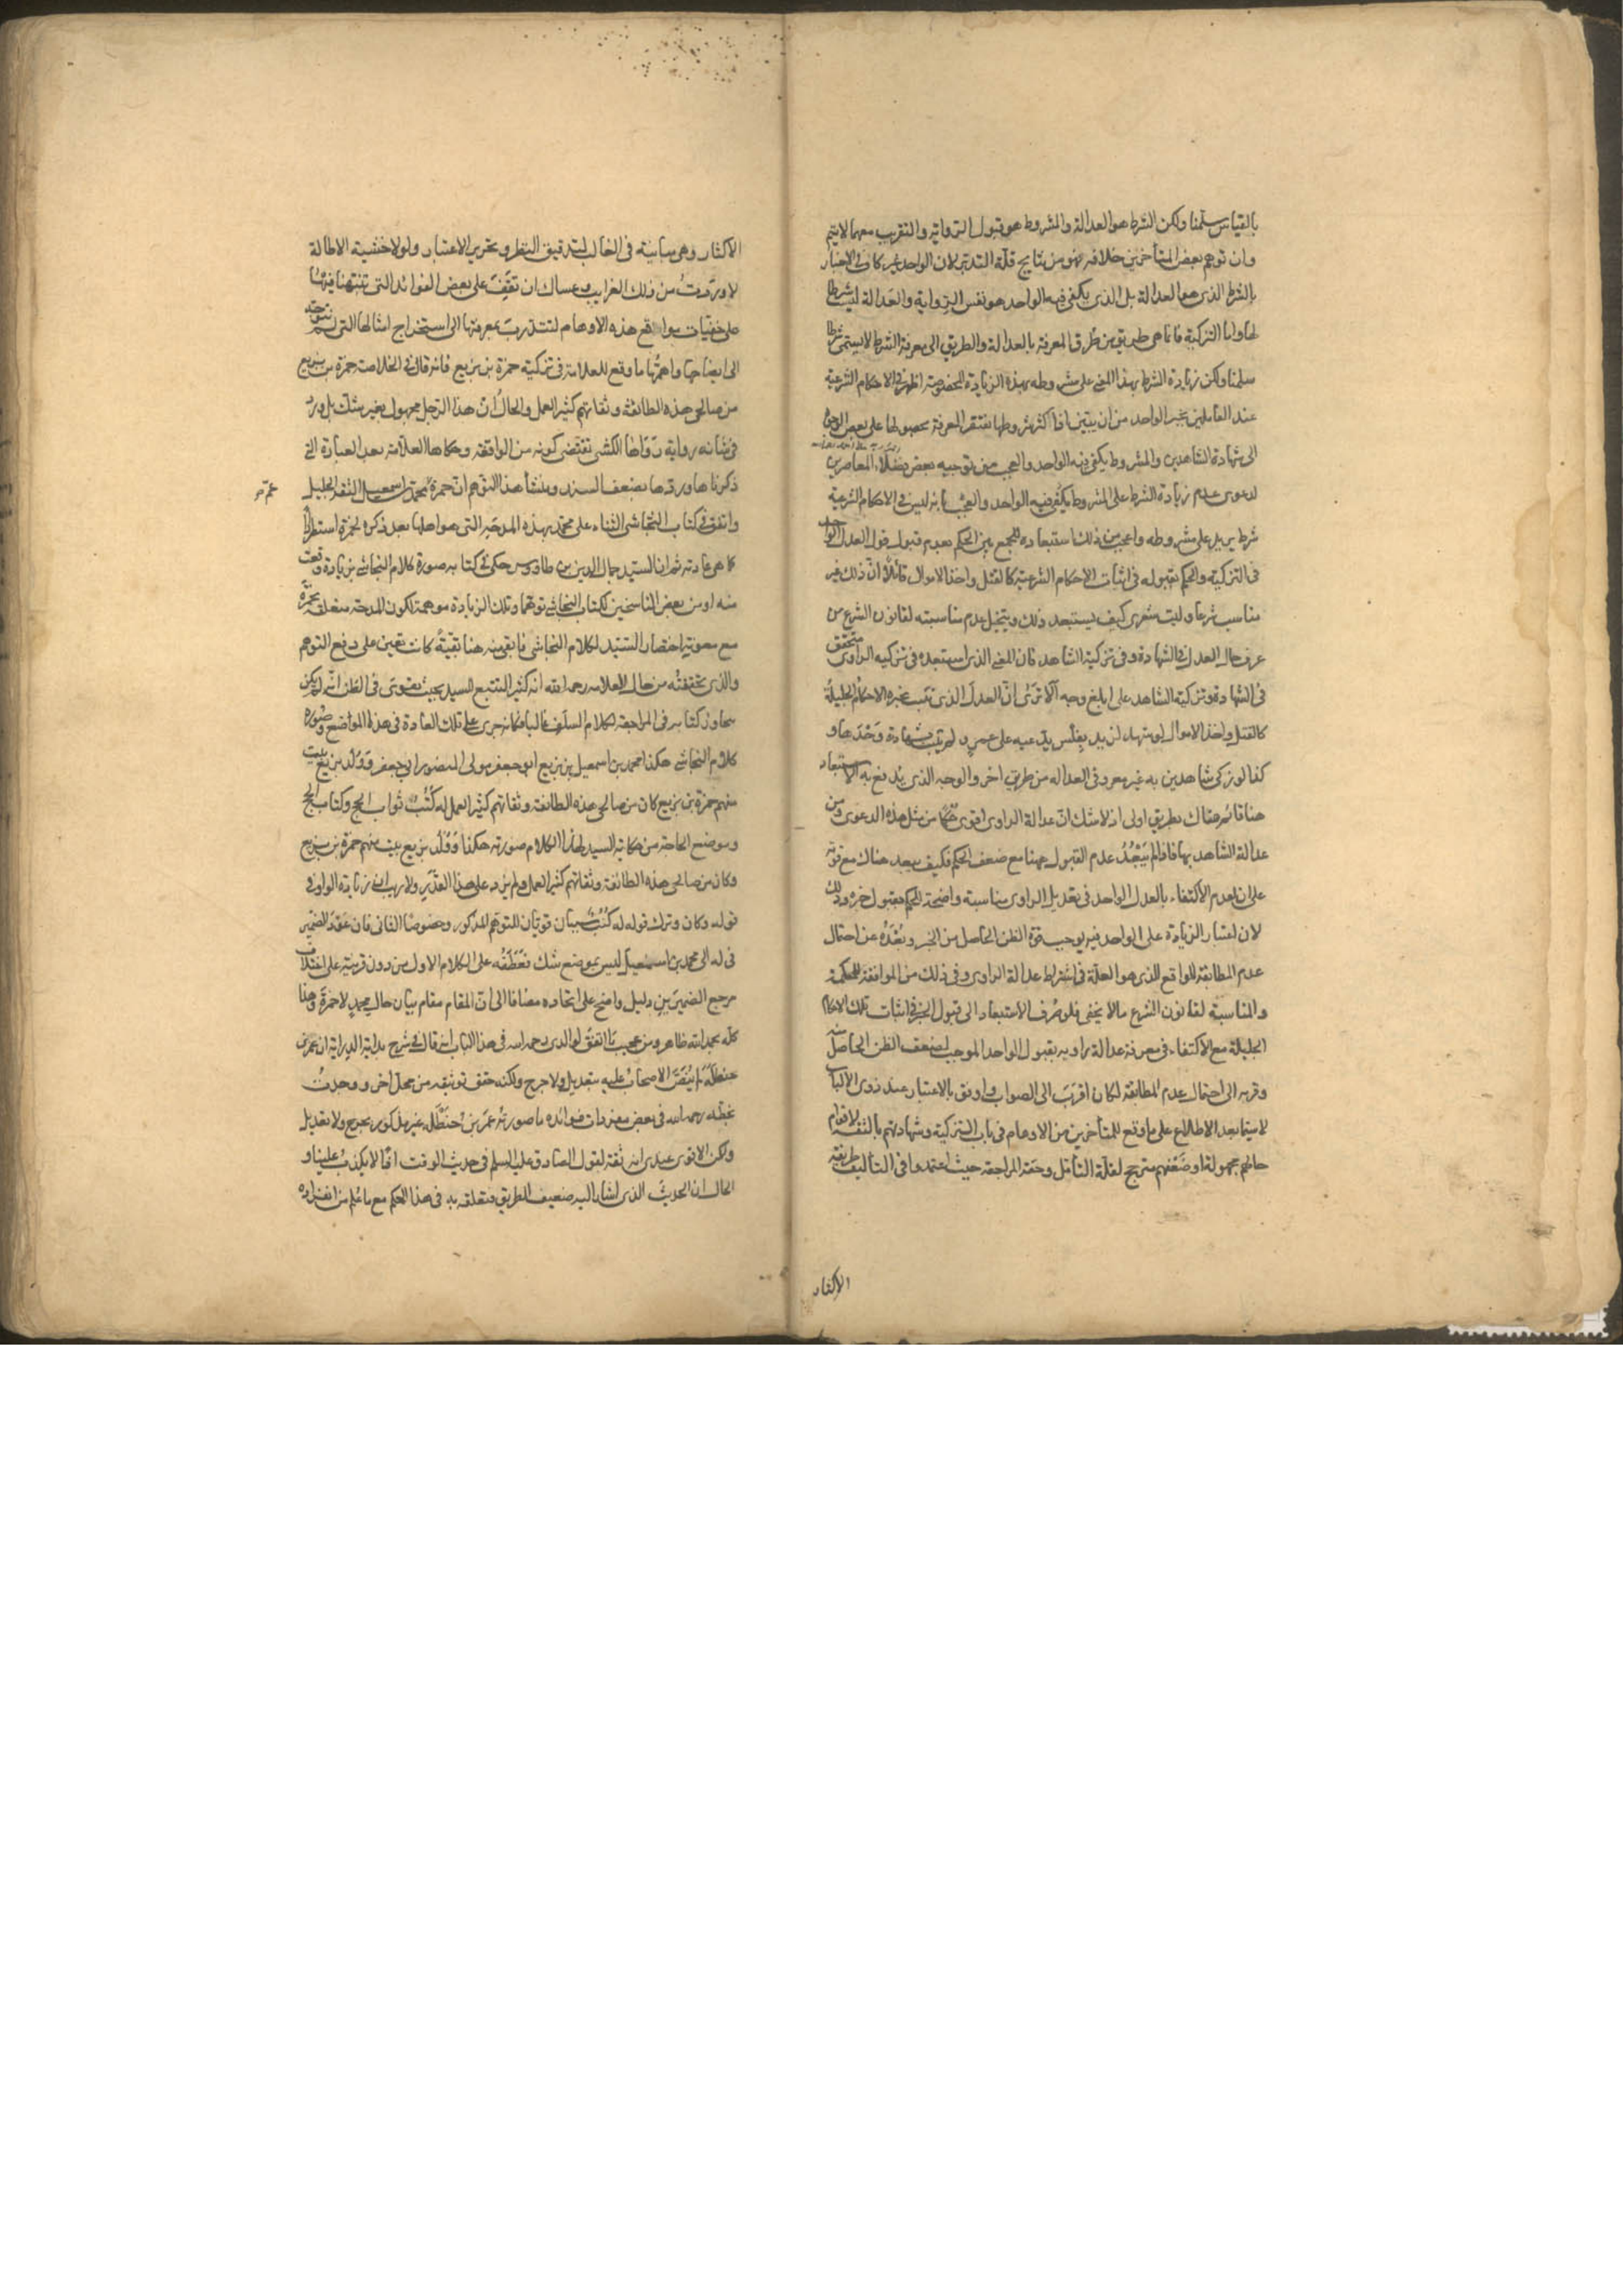 بالقياس سلمنا ولكن الشرط هو العدالة والمشروط هو قبول الرواية والتقريب معهما لا يتم
وان توهم بعض المتأخرين خلافه فهو من نتايج قلة التدبر لان الواحد غير كاف في الاخبار
بالشرط الذي هو العدالة بل الذي يكفي فيه الواحد هو نفس الرواية والعدالة ليست شرطا
لها واما التزكية فانما هي طريق من طرق المعرفة بالعدالة والطريق الى معرفة الشرط لا يسمى شرطا
سلمنا ولكن زيادة الشرط بهذا المعنى على مشروطه بهذه الزيادة المخصوصة اظهر في الاحكام الشرعية
عند العاملين بخبر الواحد من ان يبين اذ اكثر شروطها تفتقر المعرفة بحصولها على بعض الوجوه
الى شهادة الشاهدين والمشروط يكفي فيه الواحد والعجب من توجيه بعض فضلاء المعاصرين
لدعوى عدم زيادة الشرط على المشروط يكفي فيه الواحد والعجب بانه ليس في الاحكام الشرعية
شرط يزيد على مشروطه واعجب من ذلك استبعاده للجمع بين الحكم بعدم قبول قول العدل الواحد
في التزكية والحكم بقبوله في اثبات الاحكام الشرعية كالقتل واخذ الاموال قائلا ان ذلك غير
مناسب شرعا وليت شعري كيف يستبعد ذلك ويتخيل عدم مناسبته لقانون الشرع من
عرف حال العدل في الشهادة وفي تزكية الشاهد فان المعنى الذي استبعده في تزكيه الراوي متحقق
في الشهادة وتزكية الشاهد على ابلغ وجه الا ترى ان العدل الذي تثبت بخبره الاحكام الجليلة
كالقتل واخذ الاموال لو شهد لزيد بفلس يدعيه على عمرو لم يثبت بشهادة وحدها و
كذا لو زكى شاهدين به غير معروفي العداله من طريق اخر والوجه الذي يدفع به الاستبعاد
هنا قائم هناك بطريق اولى اذ لا شك ان عدالة الراوي اقوى حكما من مثل هذه الدعوى ومن
عدالة الشاهد بها فاذا لم يبعد عدم القبول ههنا مع ضعف الحكم فكيف يبعد هناك مع قوته
على ان لعدم الاكتفاء بالعدل الواحد في تعديل الراوي مناسبة واضحة للحكم بقبول خبره وذلك
لان اعتبار الزيادة على الواحد فيه يوجب قوة الظن الحاصل من الخبر وبعده عن احتمال
عدم المطابقة للواقع الذي هو العلة في اشتراط عدالة الراوي وفي ذلك من الموافقة للحكمة
والمناسبة لقانون الشرع ما لا يخفى فلو صرف الاستبعاد الى قبول الخبر في اثبات تلك الاحكام
الجليلة مع الاكتفاء في معرفة عدالة راويه بقبول الواحد الموجب لضعف الظن الحاصل منه
وقربه الى احتمال عدم المطابقة لكان اقرب الى الصواب واوفق بالاعتبار عند ذوي الالباب
لا سيما بعد الاطلاع على ما وقع للمتأخرين من الاوهام في باب التزكية وشهادتهم بالثقة لاقوام
حالهم مجهولة او ضعفهم مترجح لقلة التأمل وخفة المراجعة حيث اعتمدوا في التأليف طريقة
الاكثار
الاكثار وهي مباينة في الغالب لتدقيق النظر وتحرير الاعتبار ولولا خشية الاطالة
لاوردت من ذلك الغرايب وعساك ان تقف على بعض الفوائد التي نبهنا فيها
على خفيات مواقع هذه الاوهام لتتدرب بمعرفتها الى استخراج امثالها التي لم نتوجه
الى ايضاحها واهمها ما وقع للعلامة في تزكية حمزة بن بزيع فانه قال في الخلاصة حمزة بن بزيع
من صالحي هذه الطائفة وثقاتهم كثير العمل والحال ان هذا الرجل مجهول بغير شك بل ورد
في شانه رواية رواها الكشي تقتضي كونه من الواقفة وحكاها العلامة بعد العبارة التي
ذكرناها وردها بضعف السند ومنشأ هذا التوهم ان حمزة عم محمد بن اسمعيل الثقة الجليل
عم صح
واتفق في كتاب النجاشي الثناء على محمد بهذه المدحة التي هو اهلها بعد ذكره لحمزة استطرادا
كما هي عادته ثم ان السيد جمال الدين بن طاوس حكى في كتابه صورة كلام النجاشي بزيادة وقعت
منه او من بعض الناسخين لكتاب النجاشي توهما وتلك الزيادة موهمة لكون المدحة متعلقة بحمزة
مع معونة اختصار السيد لكلام النجاشي فابقى منه هنا بقية كانت تعين على دفع التوهم
والذي تحققته من حال العلامة رحمه الله انه كثير التتبع للسيد بحيث يقوى في الظن انه لم يكن
يجاوز كتابه في المراجعة لكلام السلف غالبا فكانه جرى على تلك العادة في هذا المواضع وصورة
كلام النجاشي هكذا محمد بن اسمعيل بن بزيع ابو جعفر مولى المنصور ابي جعفر وولد بزيع بيت
منهم حمزة بن بزيع كان من صالحي هذه الطائفة وثقاتهم كثير العمل له كتب ثواب الحج وكتاب الحج
وموضع الحاجة من حكاية السيد لهذا الكلام صورته هكذا وولد بزيع بيت منهم حمزة بن بزيع
وكان من صالحي هذه الطائفة وثقاتهم كثير العمل ولم يزد على هذا القدر ولا ريب ان زيادة الواو في
قوله وكان وترك قوله له كتب سببان قويان للتوهم المذكور وخصوصا الثاني فان عود الضمير
في له الى محمد بن اسمعيل ليس بموضع شك فعطفه على الكلام الاول من دون قرينة على اختلاف
مرجع الضميرين دليل واضح على اتحاده مضافا الى ان المقام مقام بيان حال محمد لا حمزة وهذا
كله بحمد الله ظاهر ومن عجيب ما اتفق لوالدي رحمه الله في هذا الباب انه قال في شرح بداية الدراية ان عمر بن
حنظلة لم ينص الاصحاب عليه بتعديل ولا جرح ولكنه حقق توثيقه من محل اخر ووجدت
بخطه رحمه الله في بعض مفردات فوائده ما صورته عمر بن حنظلة غير مذكور بجرح ولا تعديل
ولكن الاقوى عندي انه ثقة لقول الصادق عليه السلم في حديث الوقت اذا لا يكذب علينا و
الحال ان الحديث الذي اشار اليه ضعيف الطريق فتعلقه به في هذا الحكم مع ما علم من انفراده